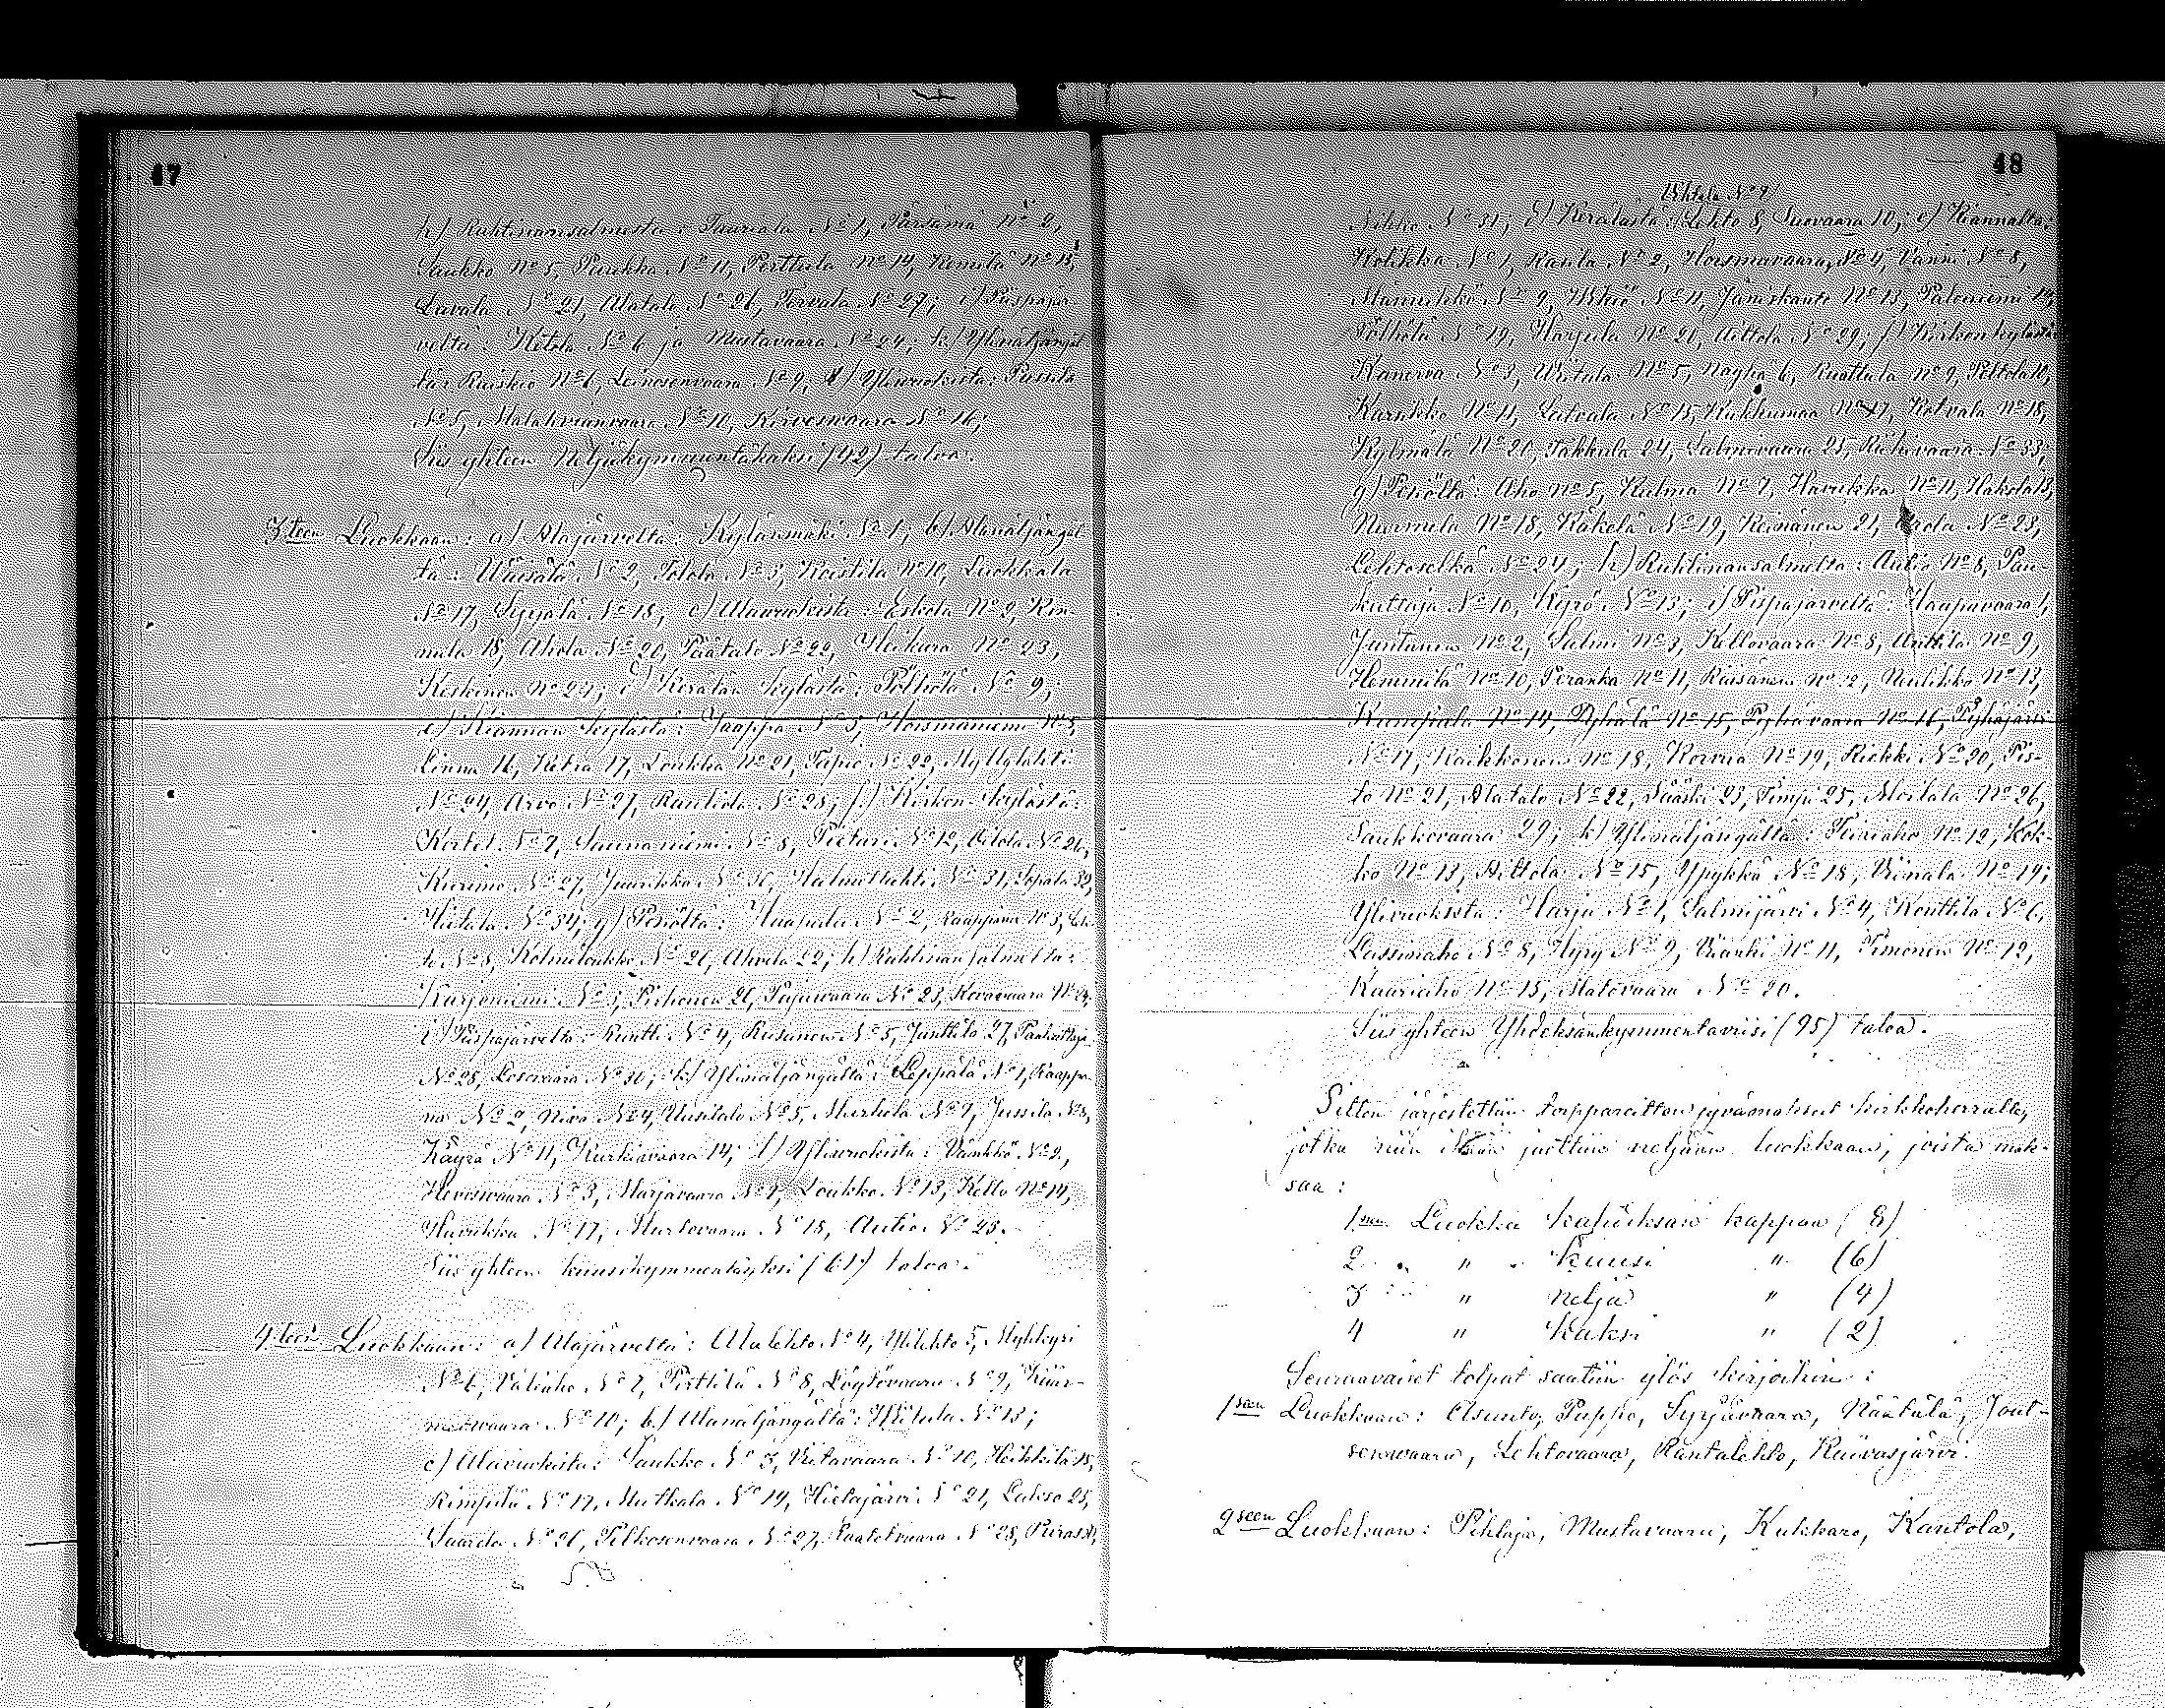 47
h) Ruhtinaansalmesta: Tauriala No 1, Pärsämä No 2,
Saukko No 5, Puukka No 11, Perttula No 14, Kemilä No 15,
Lavala No 21, Alatalo No 26, Tervala No 27; i) Piispajär-
veltä: Hetola No 6 ja Mustavaara No 24; k) Ylinäljängäl-
tä: Ruiskio No 6, Leinosenvaara No 9, l) Ylivuokista: Pussila
No 5, Malahvianvaara No 10, Kirvesvaara No 16;
Siis yhteen Neljäkymmentäkaksi (42) taloa.
3teen Luokkaan: a) Alajärveltä: Kylänmäki No 1; b) Alanäljängäl-
tä: Väisälä No 2, Tolola No 3, Koistila No 10, Luokkala
No 17, Syrjälä No 18; c) Alavuokista: Eskola No 2, Rin-
nala 18, Ahola No 20, Päätalo No 22, Heikura No 23,
Keskinen No 24; d) Kerälän kylästä: Pölhölä No 9;
e) Kiannan kylästä: Jaappa No 3, Horsmaniemi No 5,
Linna 16, Ketra 17, Loukka No 21, Tapio No 22, Myllylahti
No 24, Arvo No 27, Rantiola No 28; f) Kirkon-kylästä:
Kortet No 7, Saunaniemi No 8, Pietari No 12, Ailola No 26,
Kurimo No 27, Juurikka No 30, Halmetlahti No 31, Sopala 32,
Hietala No 34; g) Pesiöltä: Haapala No 2, Kaappana No 3, Leh-
to No 8, Kolmiloukko No 20, Ahvola 22; h) Ruhtinansalmelta:
Karjaniemi No 3, Pirhonen 20, Pajuvaara No 23, Kovavaara No 24;
i) Piispajärveltä: Kuntti No 4, Kusianen No 5, Junttila 27,
No 28, Losovaara No 30; k) Ylinäljängältä: Leppälä No 1, Kaappa-
na No 2, Niva No 4, Uusitalo No 5, Murhola No 7, Jussila No 8,
Käyrä No 11, Kurkiavaara 14; l) Ylivuokista: Vänkkö No 2,
Hirvisvaara No 3, Marjavaara No 7, Loukko No 13, Kello No 14,
Havukka No 17, Murtovaara No 18, Autio No 23.
Siis yhteen kuusikymmentäyksi (61) taloa.
4teen Luokkaan: a) Alajärveltä: Alalehto No 4, Ylilehto 5, Myhkyri
No 6, Väliaho No 7, Pirttilä No 8, Löytövaara No 9, Käär-
mesvaara No 10; b) Alanäljängältä: Hiltula No 13;
c) Alavuokista: Saukko No 3, Viitavaara No 10, Heikkilä 15,
Rimpilä No 17, Mutkala No 19, Hietajärvi No 21, Lakso 25,
Saarela No 26, Pelkosenvaara No 27, Raatelvaara No 28,
48
Uhtola No 2
Nikko No 31; d) Kerälästä: Lehto 8, Suovaara 10; e) Kiannalta:
Kolikka No 1, Karila No 2, Horsmavaara, No 4, Vanni No 8,
Männikkö No 9, Yrkiö No 11, Jäniskanto No 13, Paloniemi 14,
Pölhölä No 19, Harjula No 20, Aittola No 29; f) Kirkonkylästä:
Kanerva No 3, Virtala No 5, Näykä 6, Ruottula No 9, Peltola 10,
Karukko No 11, Latvala No 15, Kukkumaa No 17, Kotvala No 18,
Kylmälä No 20, Takkula 24, Salmivaara 25, Riihivaara No 33;
g) Pesiöltä: Aho No 5, Kulma No 7, Havukka No 11, Haksola 13,
Nurmela No 18, Käkelä No 19, Keinänen 21, Erola No 23,
Lehtoselkä No 24; h) Ruhtinansalmelta: Aulio No 8, Pau-
kuttaja No 10, Kyrö No 13; i) Pispajärveltä: Haapavaara 1,
Juntunen No 2, Salmi No 3, Kellovaara No 8, Anttila No 9,
Hemmilä No 10, Peranka No 11, Räisänen No 12, Neulikko No 13,
Kumpula No 14, Pyhälä No 15, Pyhävaara No 16, Pyhäjärvi
No 17, Kaikkonen No 18, Korvua No 19, Riekki No 20, Pis-
to No 21, Alatalo No 22, Sääski 23, Timpi 25, Moilala No 26,
Saukkovaara 29; k) Ylinäljängältä: Teiriaho No 12, Kok-
ko No 13, Aittola No 15, Ypykkä No 18, Viinala No 19;
Ylivuokista: Harju No 1, Salmijärvi No 4, Konttila No 6,
Lassinaho No 8, Hyry No 9, Vianki No 11, Timonen No 12,
Kaariaho No 15, Matovaara No 20.
Siis yhteen Yhdeksänkymmentäviisi (95) taloa.
Sitten järjestettiin torppareitten jyvämaksut kirkkoherralle,
jotka niin ikään jaettiin neljään luokkaan, joista mak-
saa:
1nen Luokka kahdeksan kappaa (8)
2 " " kuusi " (6)
3 " neljä " (4)
4 " kaksi " (2)
Seuraavaiset tolpat saatiin ylös kirjoihin:
1seen Luokkaan: Asunto, Puppo, Syrjävaara, Näätälä, Jout-
senvaara, Lehtovaara, Rantalehto, Kuivasjärvi.
2seen Luokkaan: Pihlaja, Mustavaara, Kukkaro, Kantola,